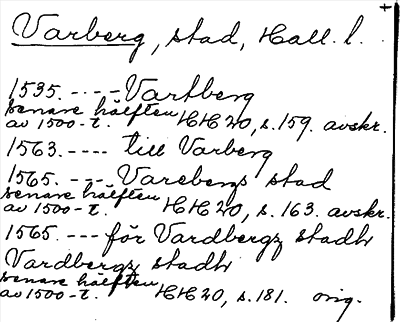 Varberg, stad, Hall. l.
1535. ---- Vartberg
senare hälften
av 1500-t. HH 20, s. 159. avskr.
1563. ---- till Varberg
1565. --- Varebergs stad
senare hälften
av 1500-t. HH 20, s. 163. avskr.
1565. --- för Vardbergz stadh
Vardbergz stadh
senare hälften
av 1500-t. HH 20, s. 181. orig.